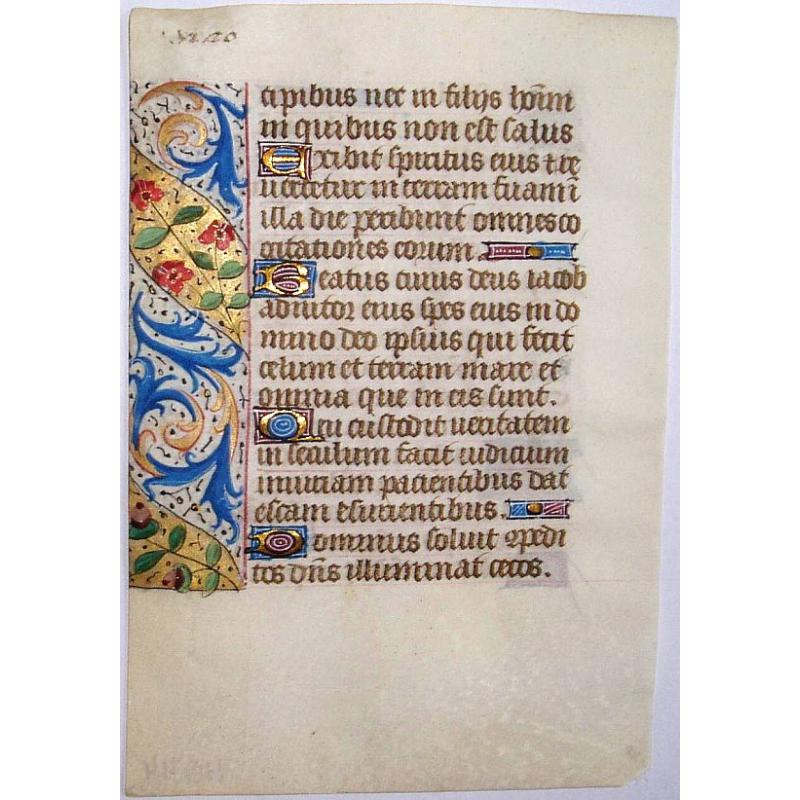 cipibus nec in filijs hoīm
in quibus non est salus
Exibit spiritus eius et re
uertetur in terram suam ī
illa die peribunt omnes co
gitationes eorum.
Beatus cuius deus iacob
adiutor eius spes eius in do
mino deo ipsius qui fecit
celum et terram mare et
omnia que in eis sunt.
Qui custodit ueritatem
in seculum facit iudicium
iniuriam pacientibus dat
escam esurientibus.
Dominus soluit cōpedi
tos dn̄s illuminat cecos.